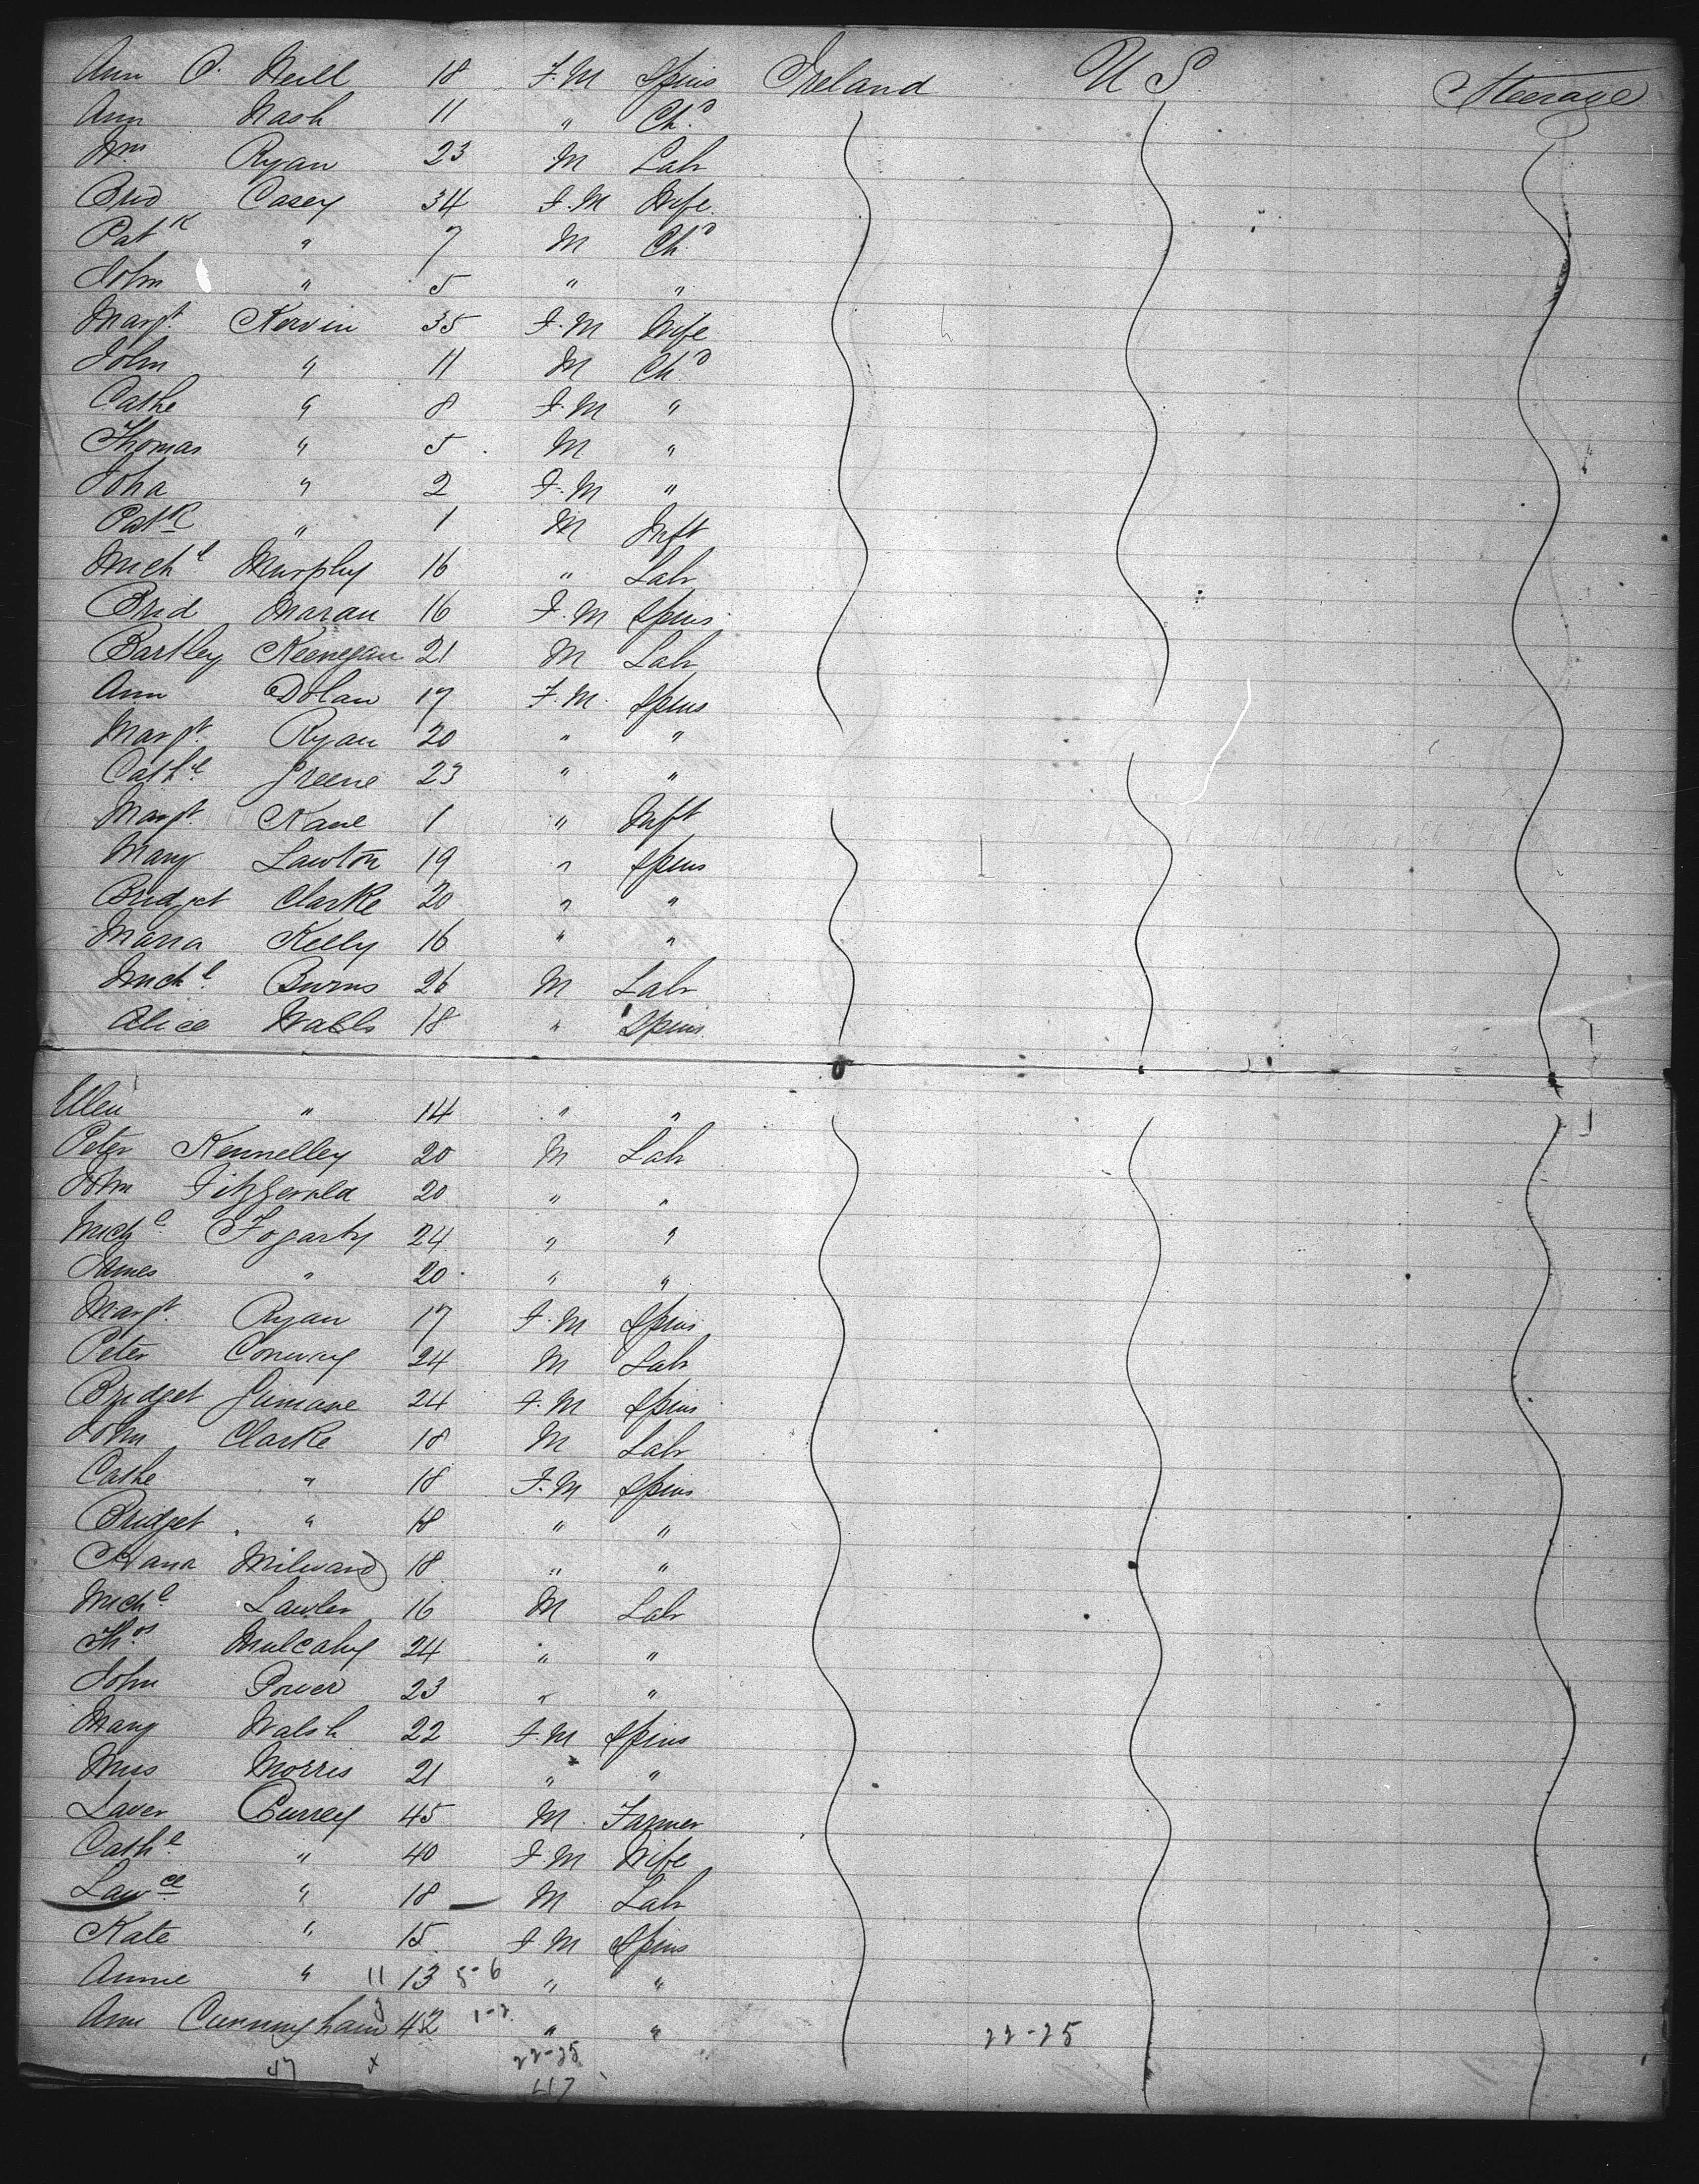 Ann O. Neill 18 F.M Spins Ireland U S. Steerage
Ann Nash 11 " Chd
Wm Ryan 23 M Labr
Brid Casey 34 F.M Wife
Patk " 7 M Chd
John " 5 " "
Margt Kervin 35 F.M Wife
John " 11 M Chd
Cathe " 8 F.M "
Thomas " 5 M "
" 2 F.M "
Patk " 1 M Inft
Michl Murphy 16 " Labr
Brid Maran 16 F.M Spins
Bartley Keenegan 21 M Labr
Ann Dolan 17 F.M. Spins
Margt Ryan 20 " "
Cathe Greene 23 " "
Margt Kane 1 " Inft
Mary Lawton 19 " Spins
Bridget Clarke 20 " "
Maria Kelly 16 " "
Michl Burns 26 M Labr
Alice Walls 18 " Spins
Ellen " 14 " "
Peter Kennelley 20 M Labr
John Fitzgerald 20 " "
Michl Fogarty 24 " "
James " 20 " "
Margt Ryan 17 F.M Spins
Peter Conway 24 M Labr
Bridget 24 F.M Spins
John Clarke 18 M Labr
Cathe " 18 F.M Spins
Bridget " 18 " "
Hana Milward 18 " "
Michl Lawler 16 M Labr
Thos Mulcahy 24 " "
John Power 23 " "
Mary Walsh 22 F.M Spins
Miss Morris 21 " "
Currey 45 M Farmer
Cathe " 40 F.M Wife
Lawce " 18 M Labr
Kate " 15 F.M Spins
Annie " 11 13 5-6 " "
Ann Cunningham 42 1-2 " " 22-25
47 x 22-25
47